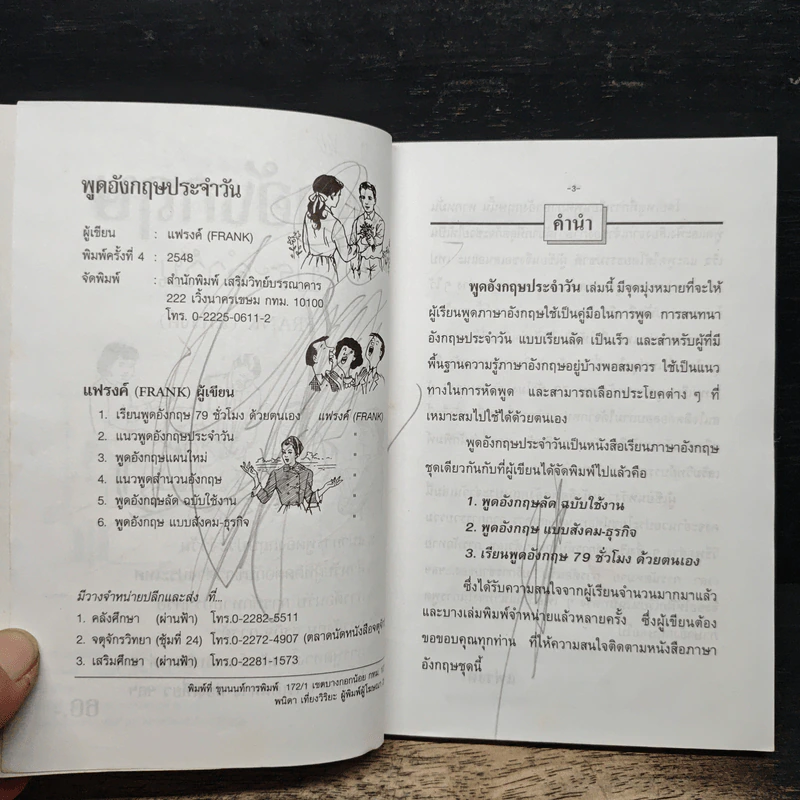 พูดอังกฤษประจำวัน
ผู้เขียน : แฟรงค์ (FRANK)
พิมพ์ครั้งที่ 4 : 2548
จัดพิมพ์ : สำนักพิมพ์ เสริมวิทย์บรรณาคาร
222 เวิ้งนาครเขษม กทม. 10100
โทร. 0-2225-0611-2
แฟรงค์ (FRANK) ผู้เขียน
1. เรียนพูดอังกฤษ 79 ชั่วโมง ด้วยตนเอง แฟรงค์ (FRANK)
2. แนวพูดอังกฤษประจำวัน "
3. พูดอังกฤษแผนใหม่ "
4. แนวพูดสำนวนอังกฤษ "
5. พูดอังกฤษลัด ฉบับใช้งาน "
6. พูดอังกฤษ แบบสังคม-ธุรกิจ "
มีวางจำหน่ายปลีกและส่ง ที่...
1. คลังศึกษา (ผ่านฟ้า) โทร.0-2282-5511
2. จตุจักรวิทยา (ซุ้มที่ 24) โทร.0-2272-4907 (ตลาดนัดหนังสือจตุจักร
3. เสริมศึกษา (ผ่านฟ้า) โทร.0-2281-1573
พิมพ์ที่ ขุนนนท์การพิมพ์ 172/1 เขตบางกอกน้อย กทม.
พนิดา เที่ยงวิริยะ ผู้พิมพ์ผู้โฆษณา
-3-
คำนำ
พูดอังกฤษประจำวัน เล่มนี้ มีจุดมุ่งหมายที่จะให้
ผู้เรียนพูดภาษาอังกฤษใช้เป็นคู่มือในการพูด การสนทนา
อังกฤษประจำวัน แบบเรียนลัด เป็นเร็ว และสำหรับผู้ที่มี
พื้นฐานความรู้ภาษาอังกฤษอยู่บ้างพอสมควร ใช้เป็นแนว
ทางในการหัดพูด และสามารถเลือกประโยคต่าง ๆ ที่
เหมาะสมไปใช้ได้ด้วยตนเอง
พูดอังกฤษประจำวันเป็นหนังสือเรียนภาษาอังกฤษ
ชุดเดียวกันกับที่ผู้เขียนได้จัดพิมพ์ไปแล้วคือ
1. พูดอังกฤษลัด ฉบับใช้งาน
2. พูดอังกฤษ แบบสังคม-ธุรกิจ
3. เรียนพูดอังกฤษ 79 ชั่วโมง ด้วยตนเอง
ซึ่งได้รับความสนใจจากผู้เรียนจำนวนมากมาแล้ว
และบางเล่มพิมพ์จำหน่ายแล้วหลายครั้ง ซึ่งผู้เขียนต้อง
ขอขอบคุณทุกท่าน ที่ให้ความสนใจติดตามหนังสือภาษา
อังกฤษชุดนี้